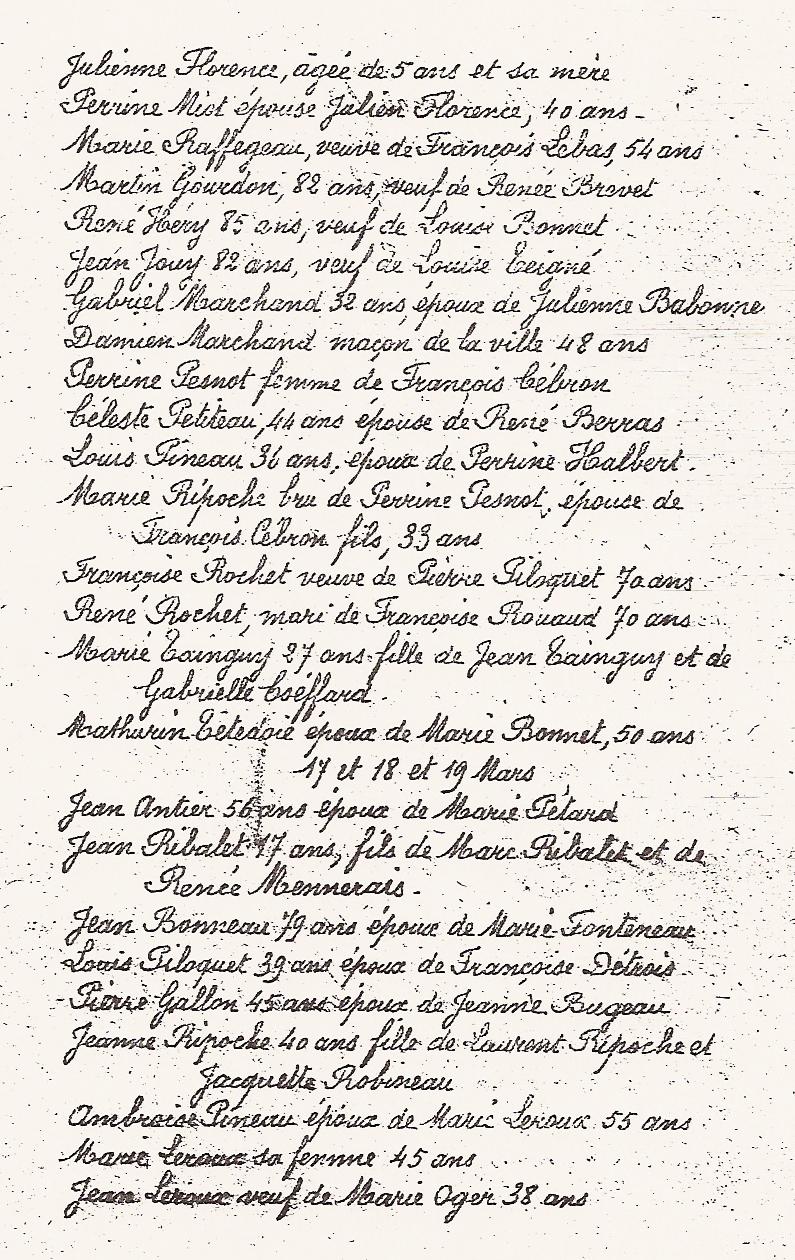 Julienne Florence, âgée de 5 ans et sa mère
Perrine Miot épouse Julien Florence, 40 ans -
Marie Raffegeau, veuve de François Lebas, 54 ans
Martin Gourdon, 82 ans, veuf de Renée Brevet
René Héry 85 ans, veuf de Louise Bonnet
Jean Jouy 82 ans, veuf de Louise Teigné
Gabriel Marchand 32 ans, époux de Julienne Babonne
Damien Marchand maçon de la ville 48 ans
Perrine Pesnot femme de François Cébron
Céleste Petiteau, 44 ans épouse de René Berras
Louis Pineau 36 ans, époux de Perrine Halbert.
Marie Ripoche bru de Perrine Pesnot, épouse de
François Cébron fils, 33 ans
Françoise Rochet veuve de Pierre Piloquet 70 ans
René Rochet, mari de Françoise Rouaud 70 ans
Marie Tainguy 27 ans fille de Jean Tainguy et de
Gabrielle Coëffard.
Mathurin Têtedoie époux de Marie Bonnet, 50 ans
17 et 18 et 19 Mars
Jean Antier 56 ans époux de Marie Pétard
Jean Ribalet 17 ans, fils de Marc Ribalet et de
Renée Mennerais.
Jean Bonneau 79 ans époux de Marie Fonteneau
Louis Piloquet 39 ans époux de Françoise Détrois
Pierre Gallon 45 ans époux de Jeanne Bugeau
Jeanne Ripoche 40 ans fille de Laurent Ripoche et
Jacquette Robineau
Ambroise Pineau époux de Marie Leroux 55 ans
Marie Leroux sa femme 45 ans
Jean Leroux veuf de Marie Oger 38 ans